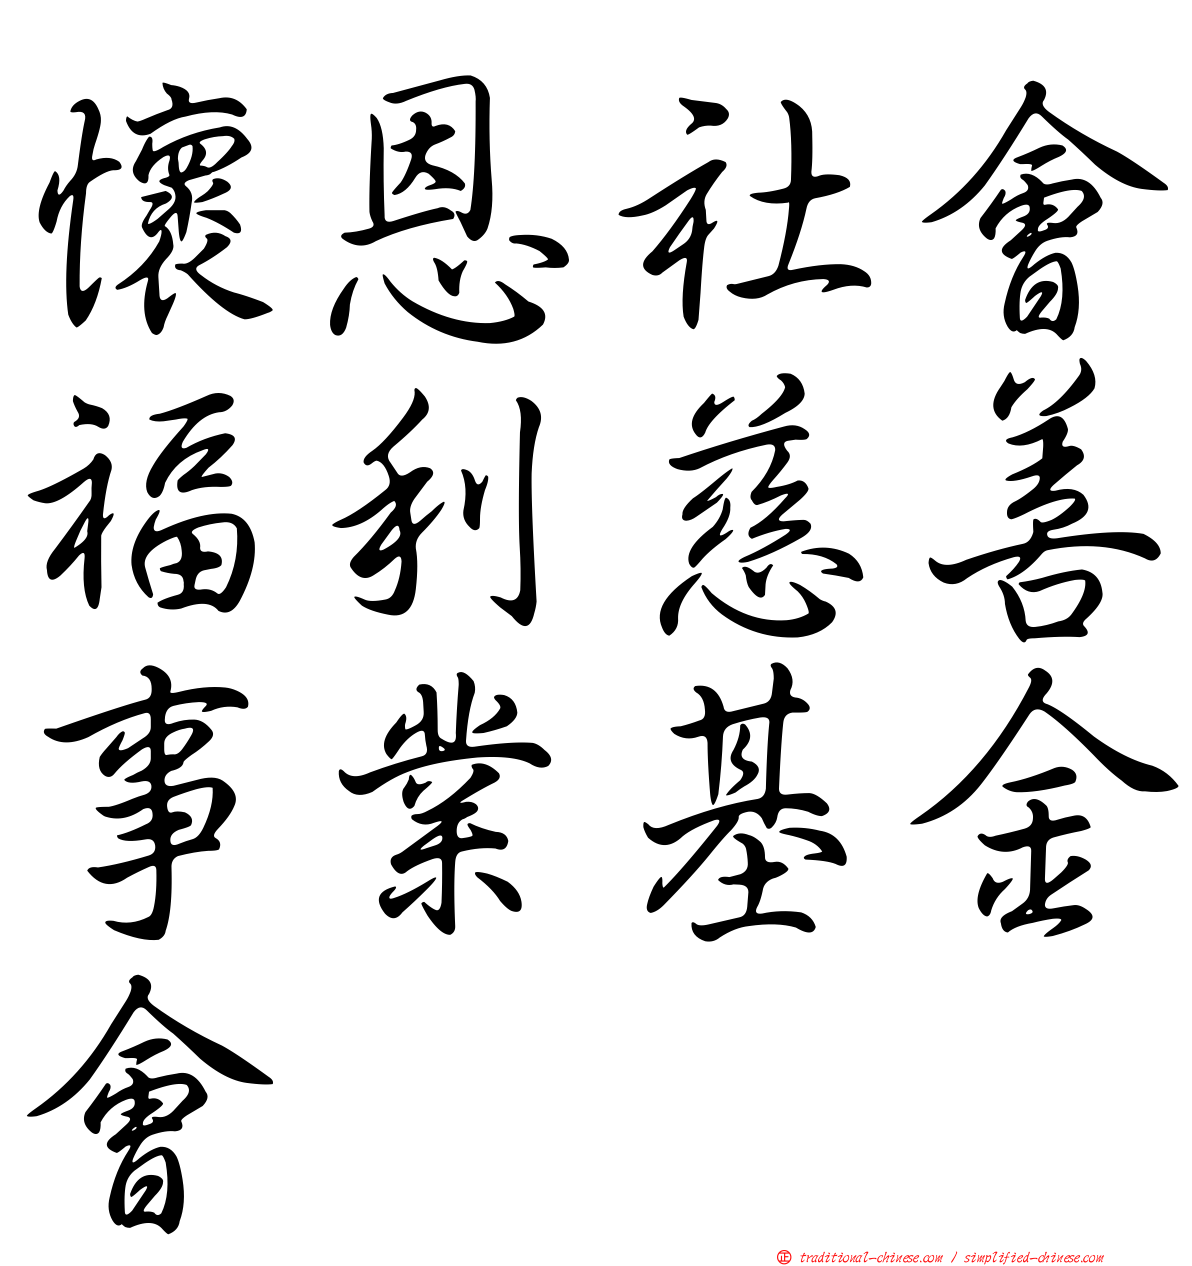 懷恩社會
福利慈善
事業基金
會
㊣ traditional-chinese.com / simplified-chinese.com